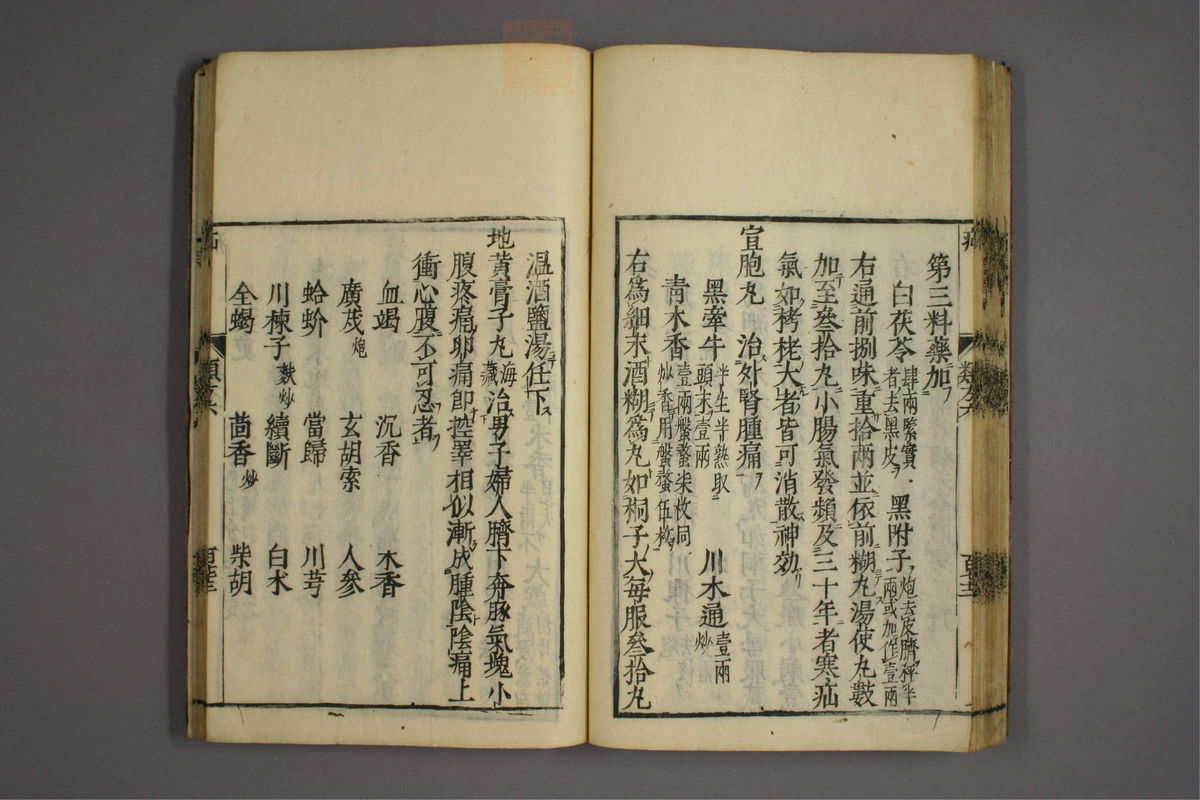 第三料藥加
白茯苓肆兩緊實者去黑皮 黑附子炮去皮臍秤半兩或加作壹兩
右通前捌味重拾兩並依前糊丸湯使丸數
加至叄拾丸小腸氣發頻及三十年者寒疝
氣如栲栳大者皆可消散神効
宣胞丸 治外腎腫痛
黑牽牛半生半熟取頭末壹兩 川木通壹兩炒
青木香壹兩盤蝥柒枚同炒香用盤蝥伍枚
右為細末酒糊為丸如桐子大每服叄拾丸
温酒鹽湯任下
地黃膏子丸海藏治男子婦人臍下奔豚氣塊小
腹疼痛卵痛即控睪相似漸成腫陰陰痛上
衝心腹不可忍者
血竭 沉香 木香
廣茂炮 玄胡索 人參
蛤蚧 當歸 川芎
川楝子麩炒 續斷 白朮
全蝎 茴香炒 柴胡